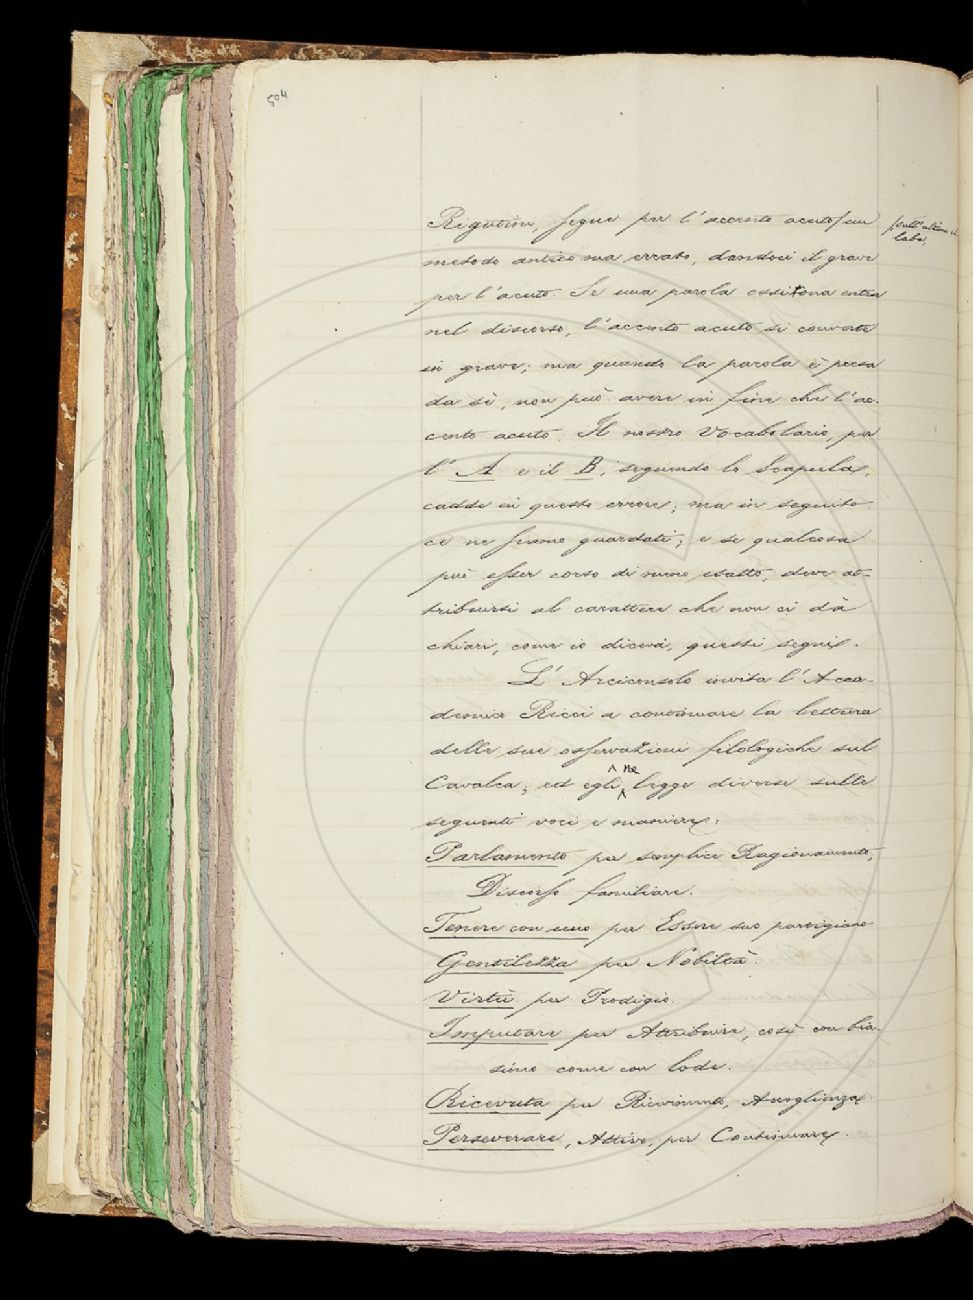 504
Rigutini, segue per l'accento acuto/ un
/sull'ultima sil-
laba,
metodo antico ma errato, dandoci il grave
per l'acuto. Se una parola ossitona entra
nel discorso, l'accento acuto si converte
in grave; ma quando la parola è presa
da sè, non può avere in fine che l'ac-
cento acuto. Il nostro Vocabolario, per
l'A e il B, seguendo lo Scapula,
cadde in questo errore; ma in seguito
ce ne siamo guardati; e se qualcosa
può esser corso di meno esatto, deve at-
tribuirsi al carattere che non ci dà
chiari, come io diceva, questi segni.
L'Arciconsolo invita l'Acca-
demico Ricci a continuare la lettura
delle sue osservazioni filologiche sul
Cavalca; ed egli ne legge diverse sulle
seguenti voci e maniere:
Parlamento per semplice Ragionamento,
Discorso familiare.
Tenere con uno per Essere suo partigiano
Gentilezza per Nobiltà.
Virtù per Prodigio.
Imputare per Attribuire, così con bia-
simo come con lode.
Ricevuta per Ricevimento, Accoglienza
Perseverare, Attivo, per Continuare.